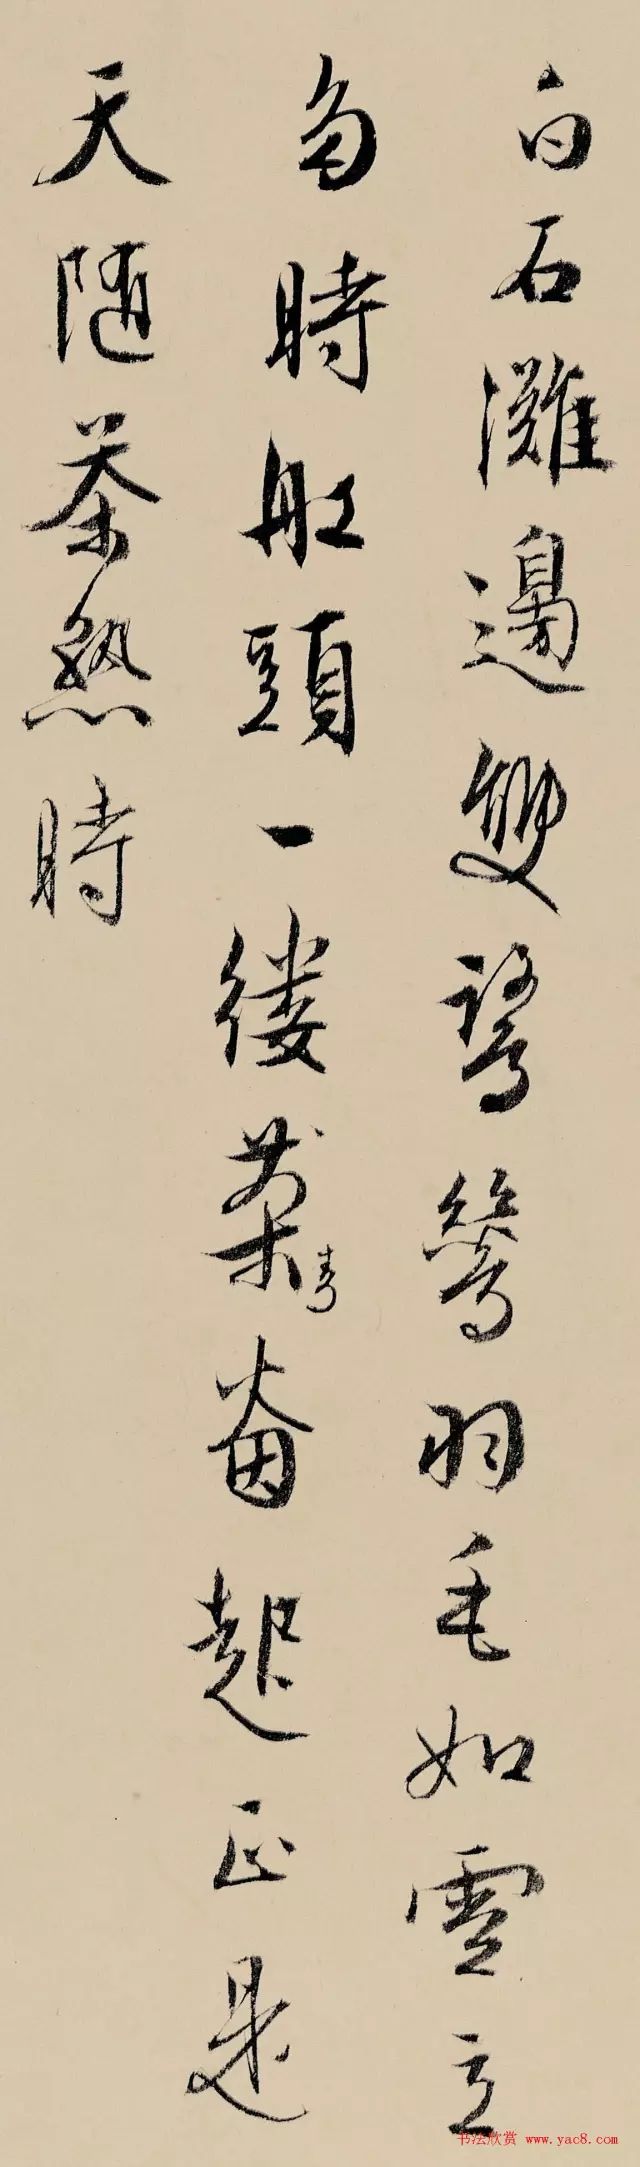 白石灘邊雙鷺鷥羽毛如雪立
多時舡頭一縷青烟起正是
天隨茶熟時
书法欣赏 www.yac8.com